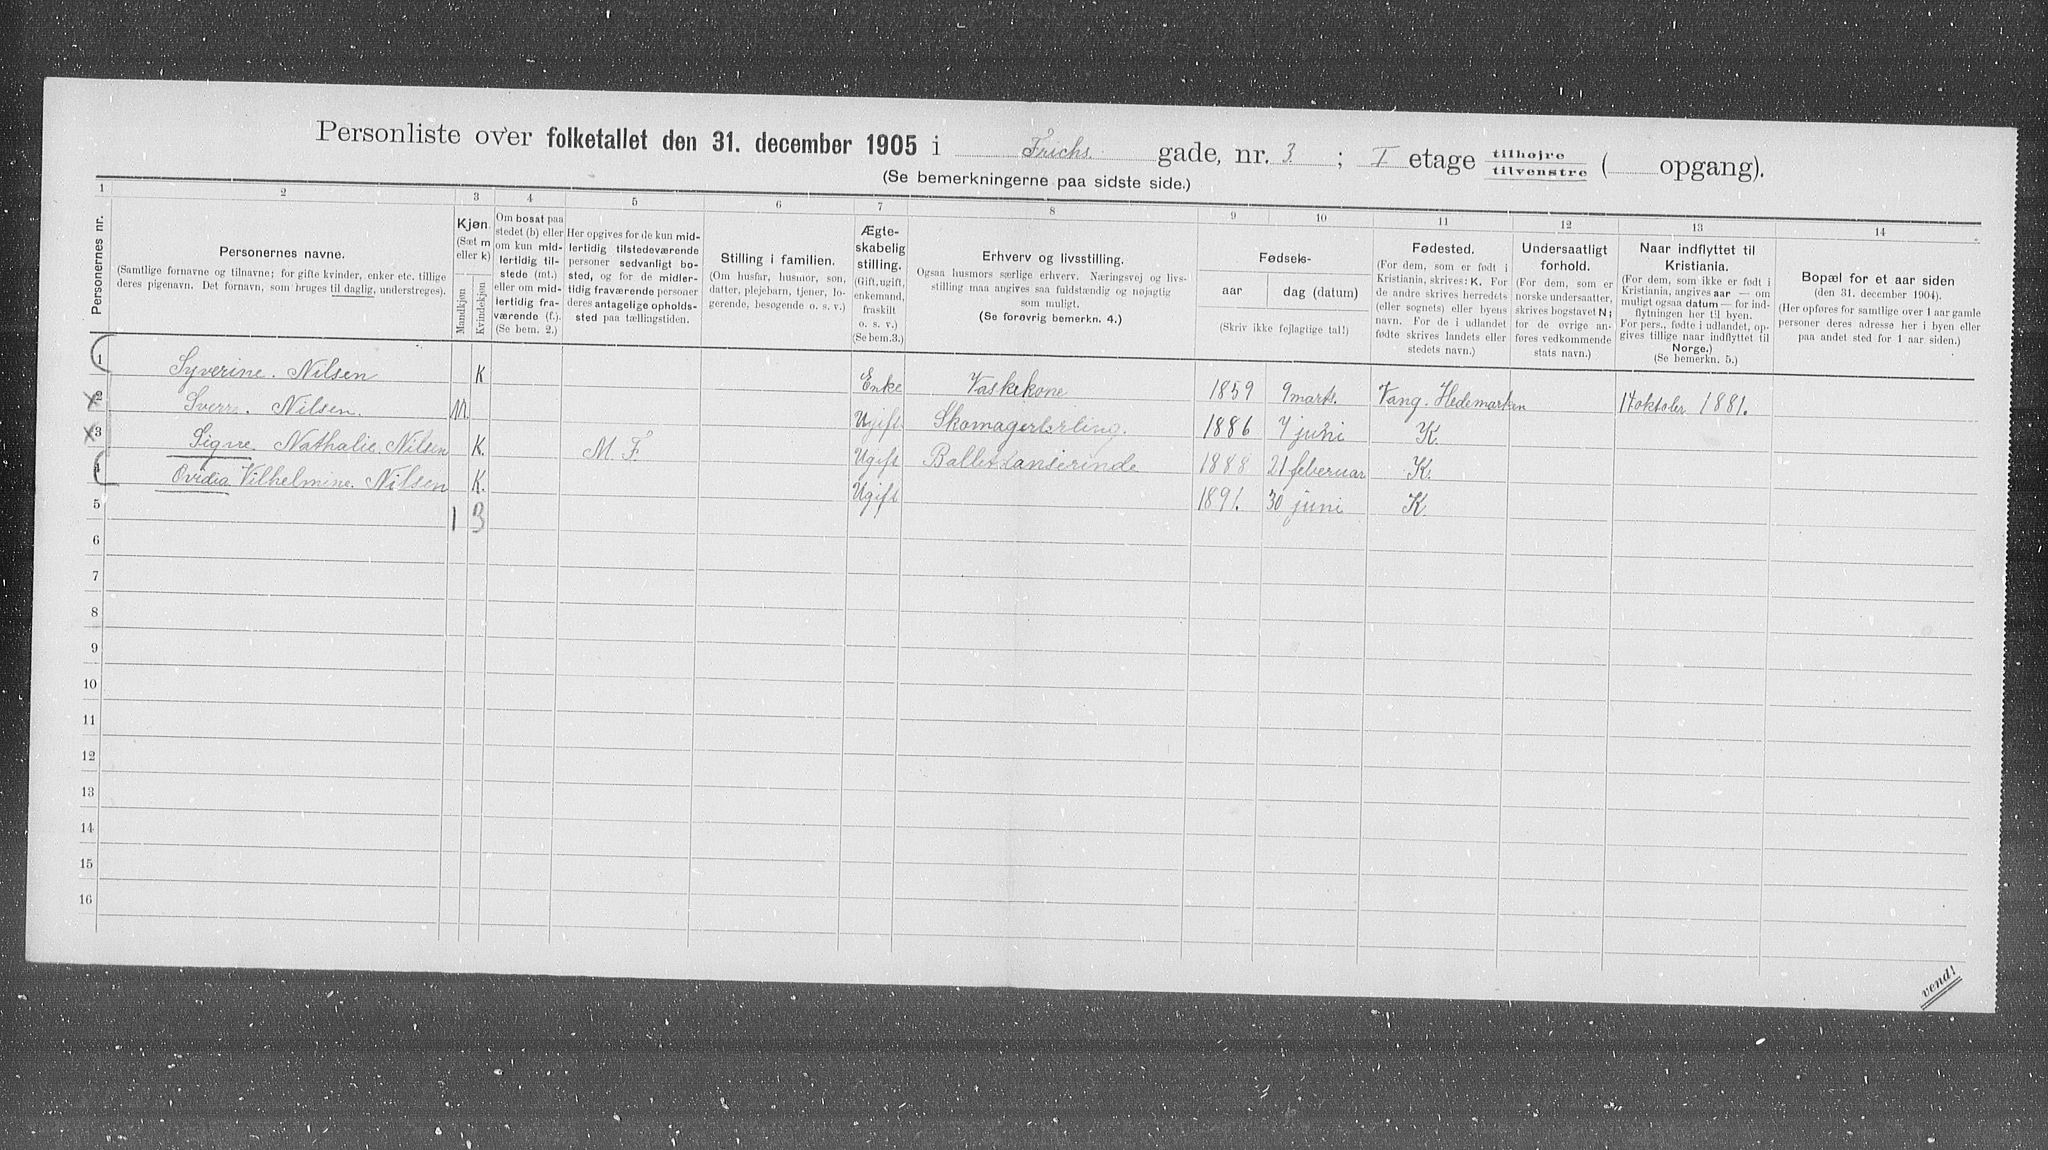 Personliste over folketallet den 31. december 1905 i Frichs gade, nr. 3 ; I etage tilhøjre tilvenstre ( opgang).
(Se bemerkningerne paa sidste side.)
1 2 3 4 5 6 7 8 9 10 11 12 13 14
Personernes nr.
Personernes navne.
(Samtlige fornavne og tilnavne; for gifte kvinder, enker etc. tillige
deres pigenavn. Det fornavn, som bruges til daglig, understreges).
Kjøn.
(Sæt m
eller k)
Mandkjøn
Kvindekjøn
Om bosat paa
stedet (b) eller
om kun mid-
lertidig til-
stede (mt.)
eller om mid-
lertidig fra-
værende (f.).
(Se bem. 2.)
Her opgives for de kun mid-
lertidig tilstedeværende
personer sedvanligt bo-
sted, og for de midler-
tidig fraværende personer
deres antagelige opholds-
sted paa tællingstiden.
Stilling i familien.
(Om husfar, husmor, søn,
datter, plejebarn, tjener, lo-
gerende, besøgende o. s. v.)
Ægte-
skabelig
stilling.
(Gift, ugift,
enkemand,
fraskilt
o. s. v.)
(Se bem.3.)
Erhverv og livsstilling.
Ogsaa husmors særlige erhverv. Næringsvej og livs-
stilling maa angives saa fuldstændig og nøjagtig
som muligt.
(Se forøvrig bemerkn. 4.)
Fødsels-
aar dag (datum)
(Skriv ikke fejlagtige tal!)
Fødested.
(For dem, som er født i
Kristiania, skrives: K. For
de andre skrives herredets
(eller sognets) eller byens
navn. For de i udlandet
fødte skrives landets eller
stedets navn.)
Undersaatligt
forhold.
(For dem, som er
norske undersaatter,
skrives bogstavet N;
for de øvrige an-
føres vedkommende
stats navn.)
Naar indflyttet til
Kristiania.
(For dem, som ikke er født i
Kristiania, angives aar — om
muligt ogsaa datum — for ind-
flytningen her til byen.
For pers., fødte i udlandet, op-
gives tillige naar indflyttet til
Norge.)
(Se bemerkn. 5.)
Bopæl for et aar siden
(den 31. december 1904).
(Her opføres for samtlige over 1 aar gamle
personer deres adresse her i byen eller
paa andet sted for 1 aar siden.)
1 Syverine. Nilsen K Enke Vaskekone 1859 9 marts. Vang. Hedemarken 14 oktober 1881.
2 Sverr. Nilsen. M. Ugift Skomagerlærling. 1886 7 juni K.
3 Signe Nathalie. Nilsen K. M. F. Ugift Balletdanserinde 1888 21 februar K.
4 Ovidia Vilhelmine. Nilsen K. Ugift 1891. 30 juni K.
5 1 3
6
7
8
9
10
11
12
13
14
15
16
vend!